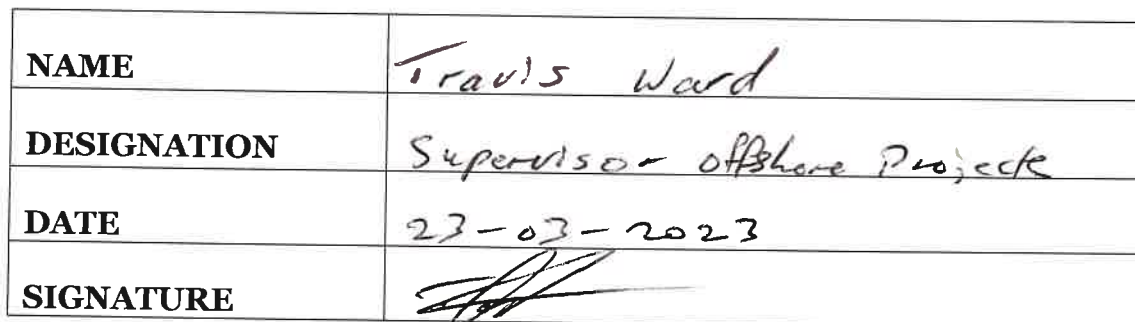 NAME Travis Ward
DESIGNATION Supervisor offshore Projects
DATE 23-03-2023
SIGNATURE